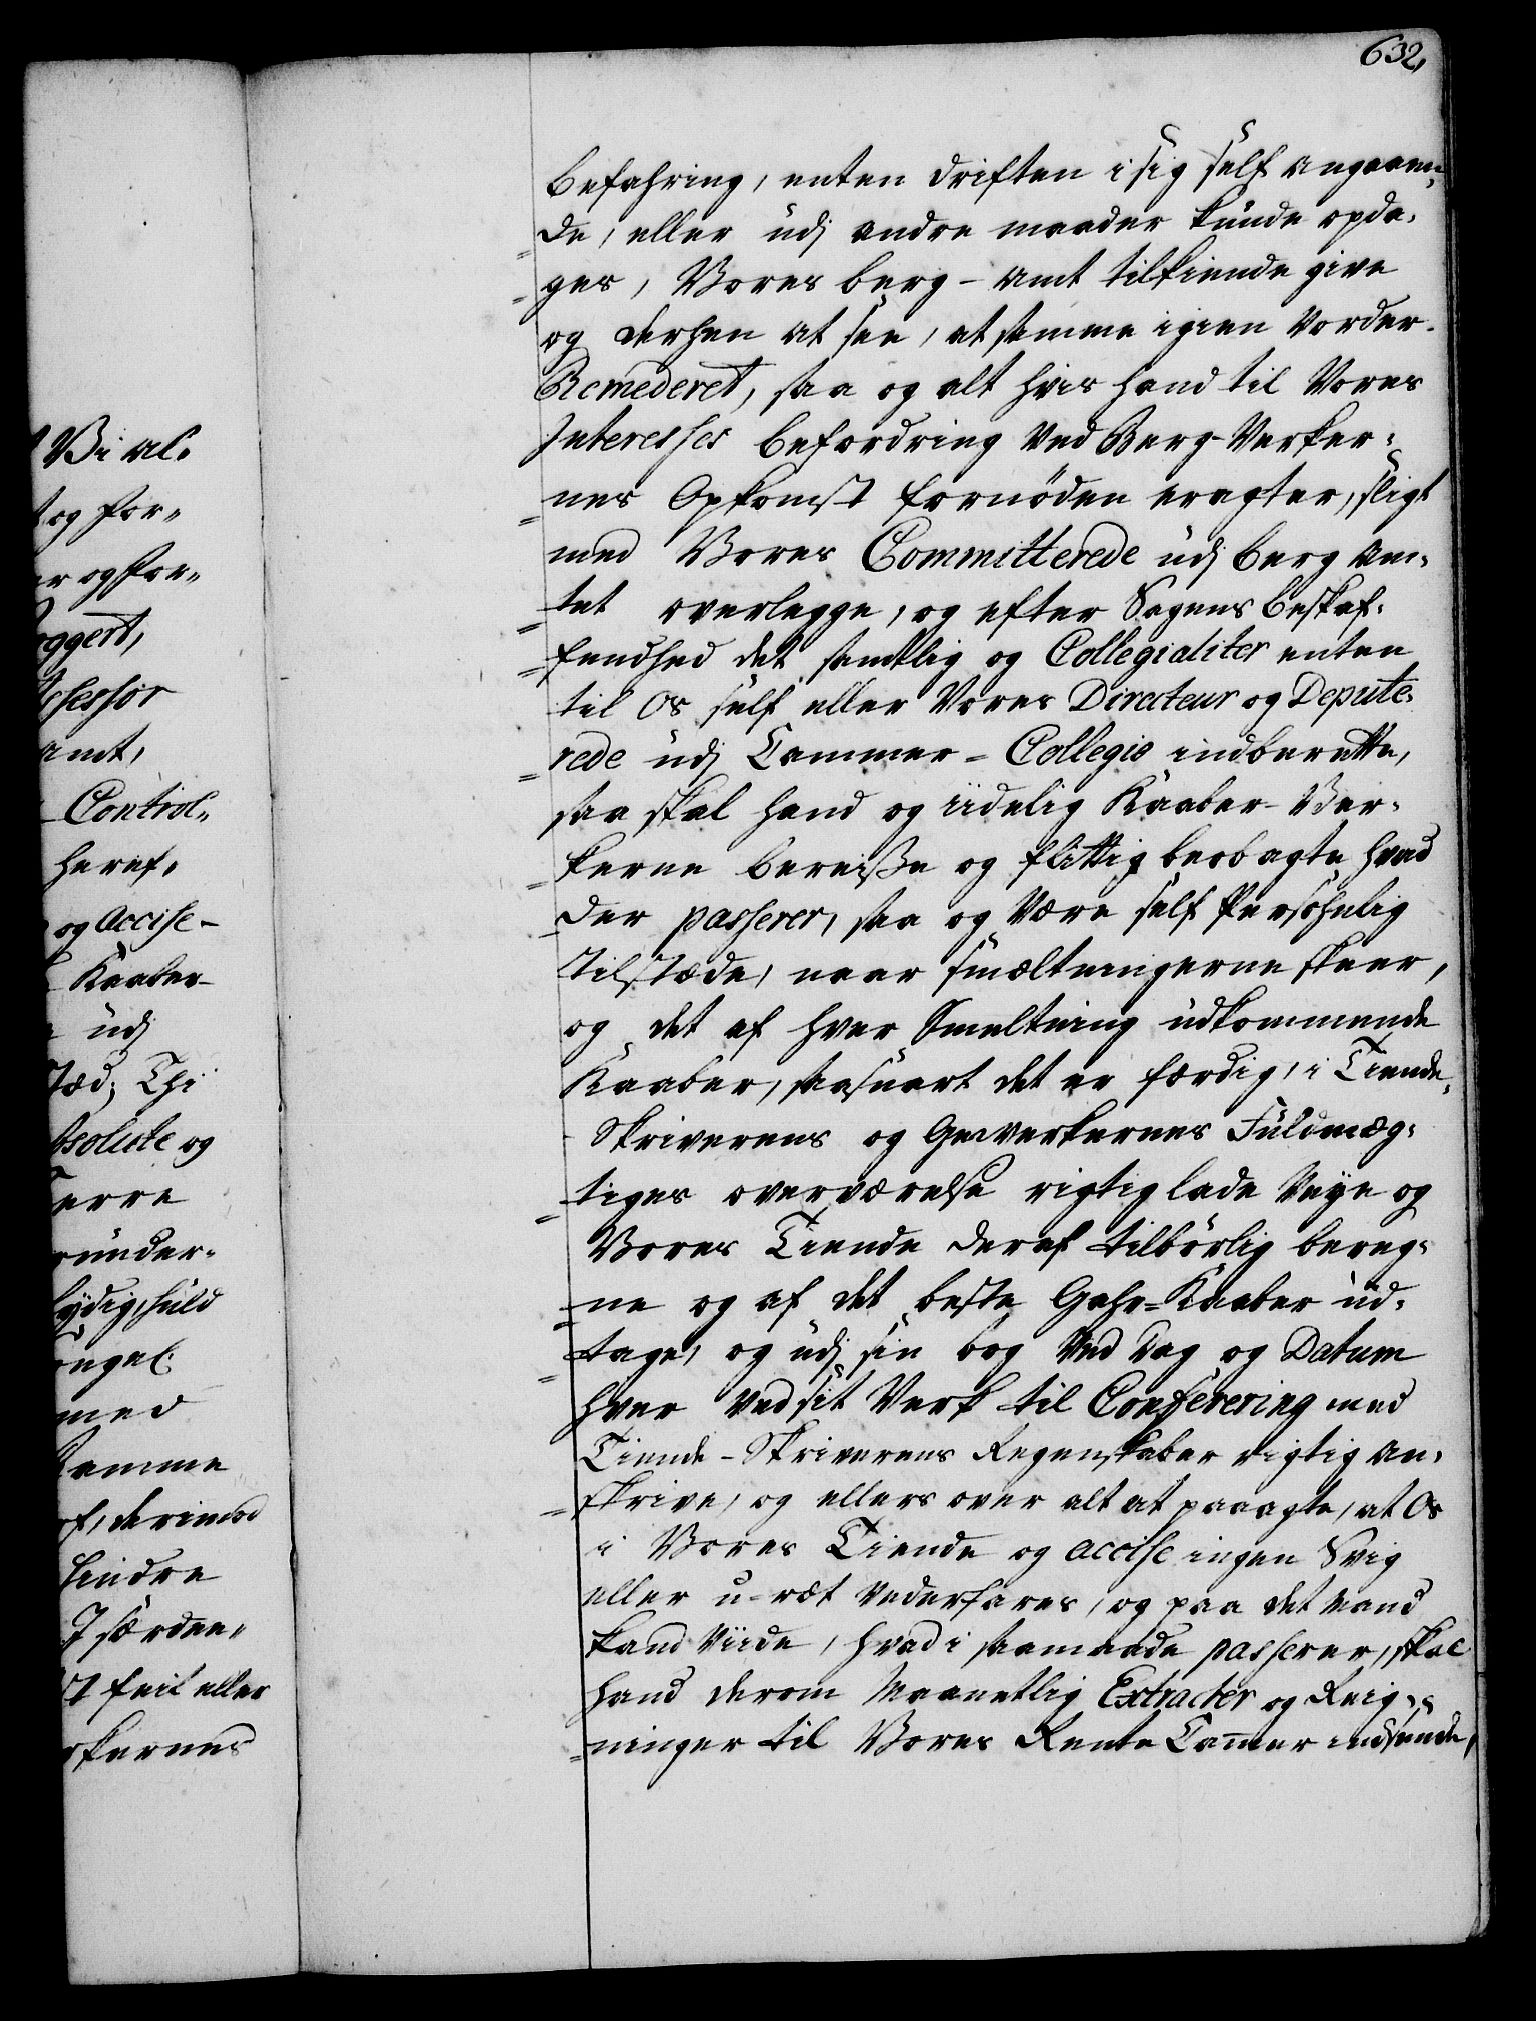 632,
Befahring, enten driften i sig self angaaen¬
de, eller udj andre maader kunde opda¬
ges, Vores berg-amt tilkiende give
og derhen at see, at samme igien vorder
Remederet, saa og alt hvis hand til Vores
Interesses befordring ved Berg-Verker¬
nes Opkomst fornöden eragter, sligt
med Vores Committerede udj berg am¬
tet overlegge, og efter Sagens beskaf¬
fendhed det samtlig og Collegialiter enten
til Os self eller Vores Directeur og Depute¬
rede udj Cammer-Collegio indberette,
saa skal hand og iidelig Kaaber-Ver¬
kerne bereisse og flittig beobagte hvad
der passerer, saa og være self Persohnlig
tilstæde, naar smæltningerne skeer,
og det af hver Smeltning udkommende
Kaaber, saasnart det er færdig, i Tiende¬
Skriverens og Gewerkernes Fuldmæg¬
tiges overværelse rigtig lade veye og
Vores Tiende deraf tilbörlig bereg¬
ne og af det beste Gahr-Kaaber ud¬
tage, og udj sin bog ved Dag og Datum
hver ved sit Verk til Conferering med
Tiende-Skriverens Regenskaber rigtig an¬
skrive, og ellers over alt at paaagte, at Os
i Vores Tiende og accise ingen Svig
eller u-ræt vederfares, og paa det mand
kand viide, hvad i saamaade passerer, skal
hand derom Maanetlig Extracter og Reig¬
ninger til Vores Rente Cammer indsende,
Vi al¬
og for¬
er og for¬
oggert,
Assessor
amt,
Control¬
heraf¬
og Accise-
Kaaber-
udj
stæd; Thi
Absolute og
herre
under¬
lydig, huld
ongel.
med
Ramme
af, derimod
hindre
særdee¬
feil eller
erkernes